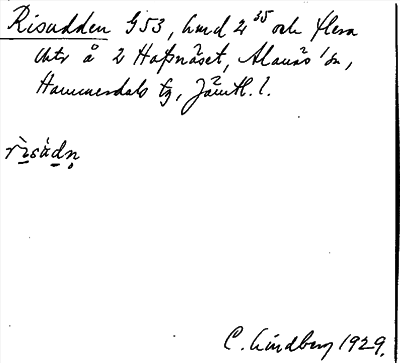 Risudden G53, hmd 2³⁵ och flera
chtr å 2 Hafsnäset, Alanäs sn,
Hammerdals tg, Jämtl. l.
rìsùdn̥
C. Lindberg 1929.